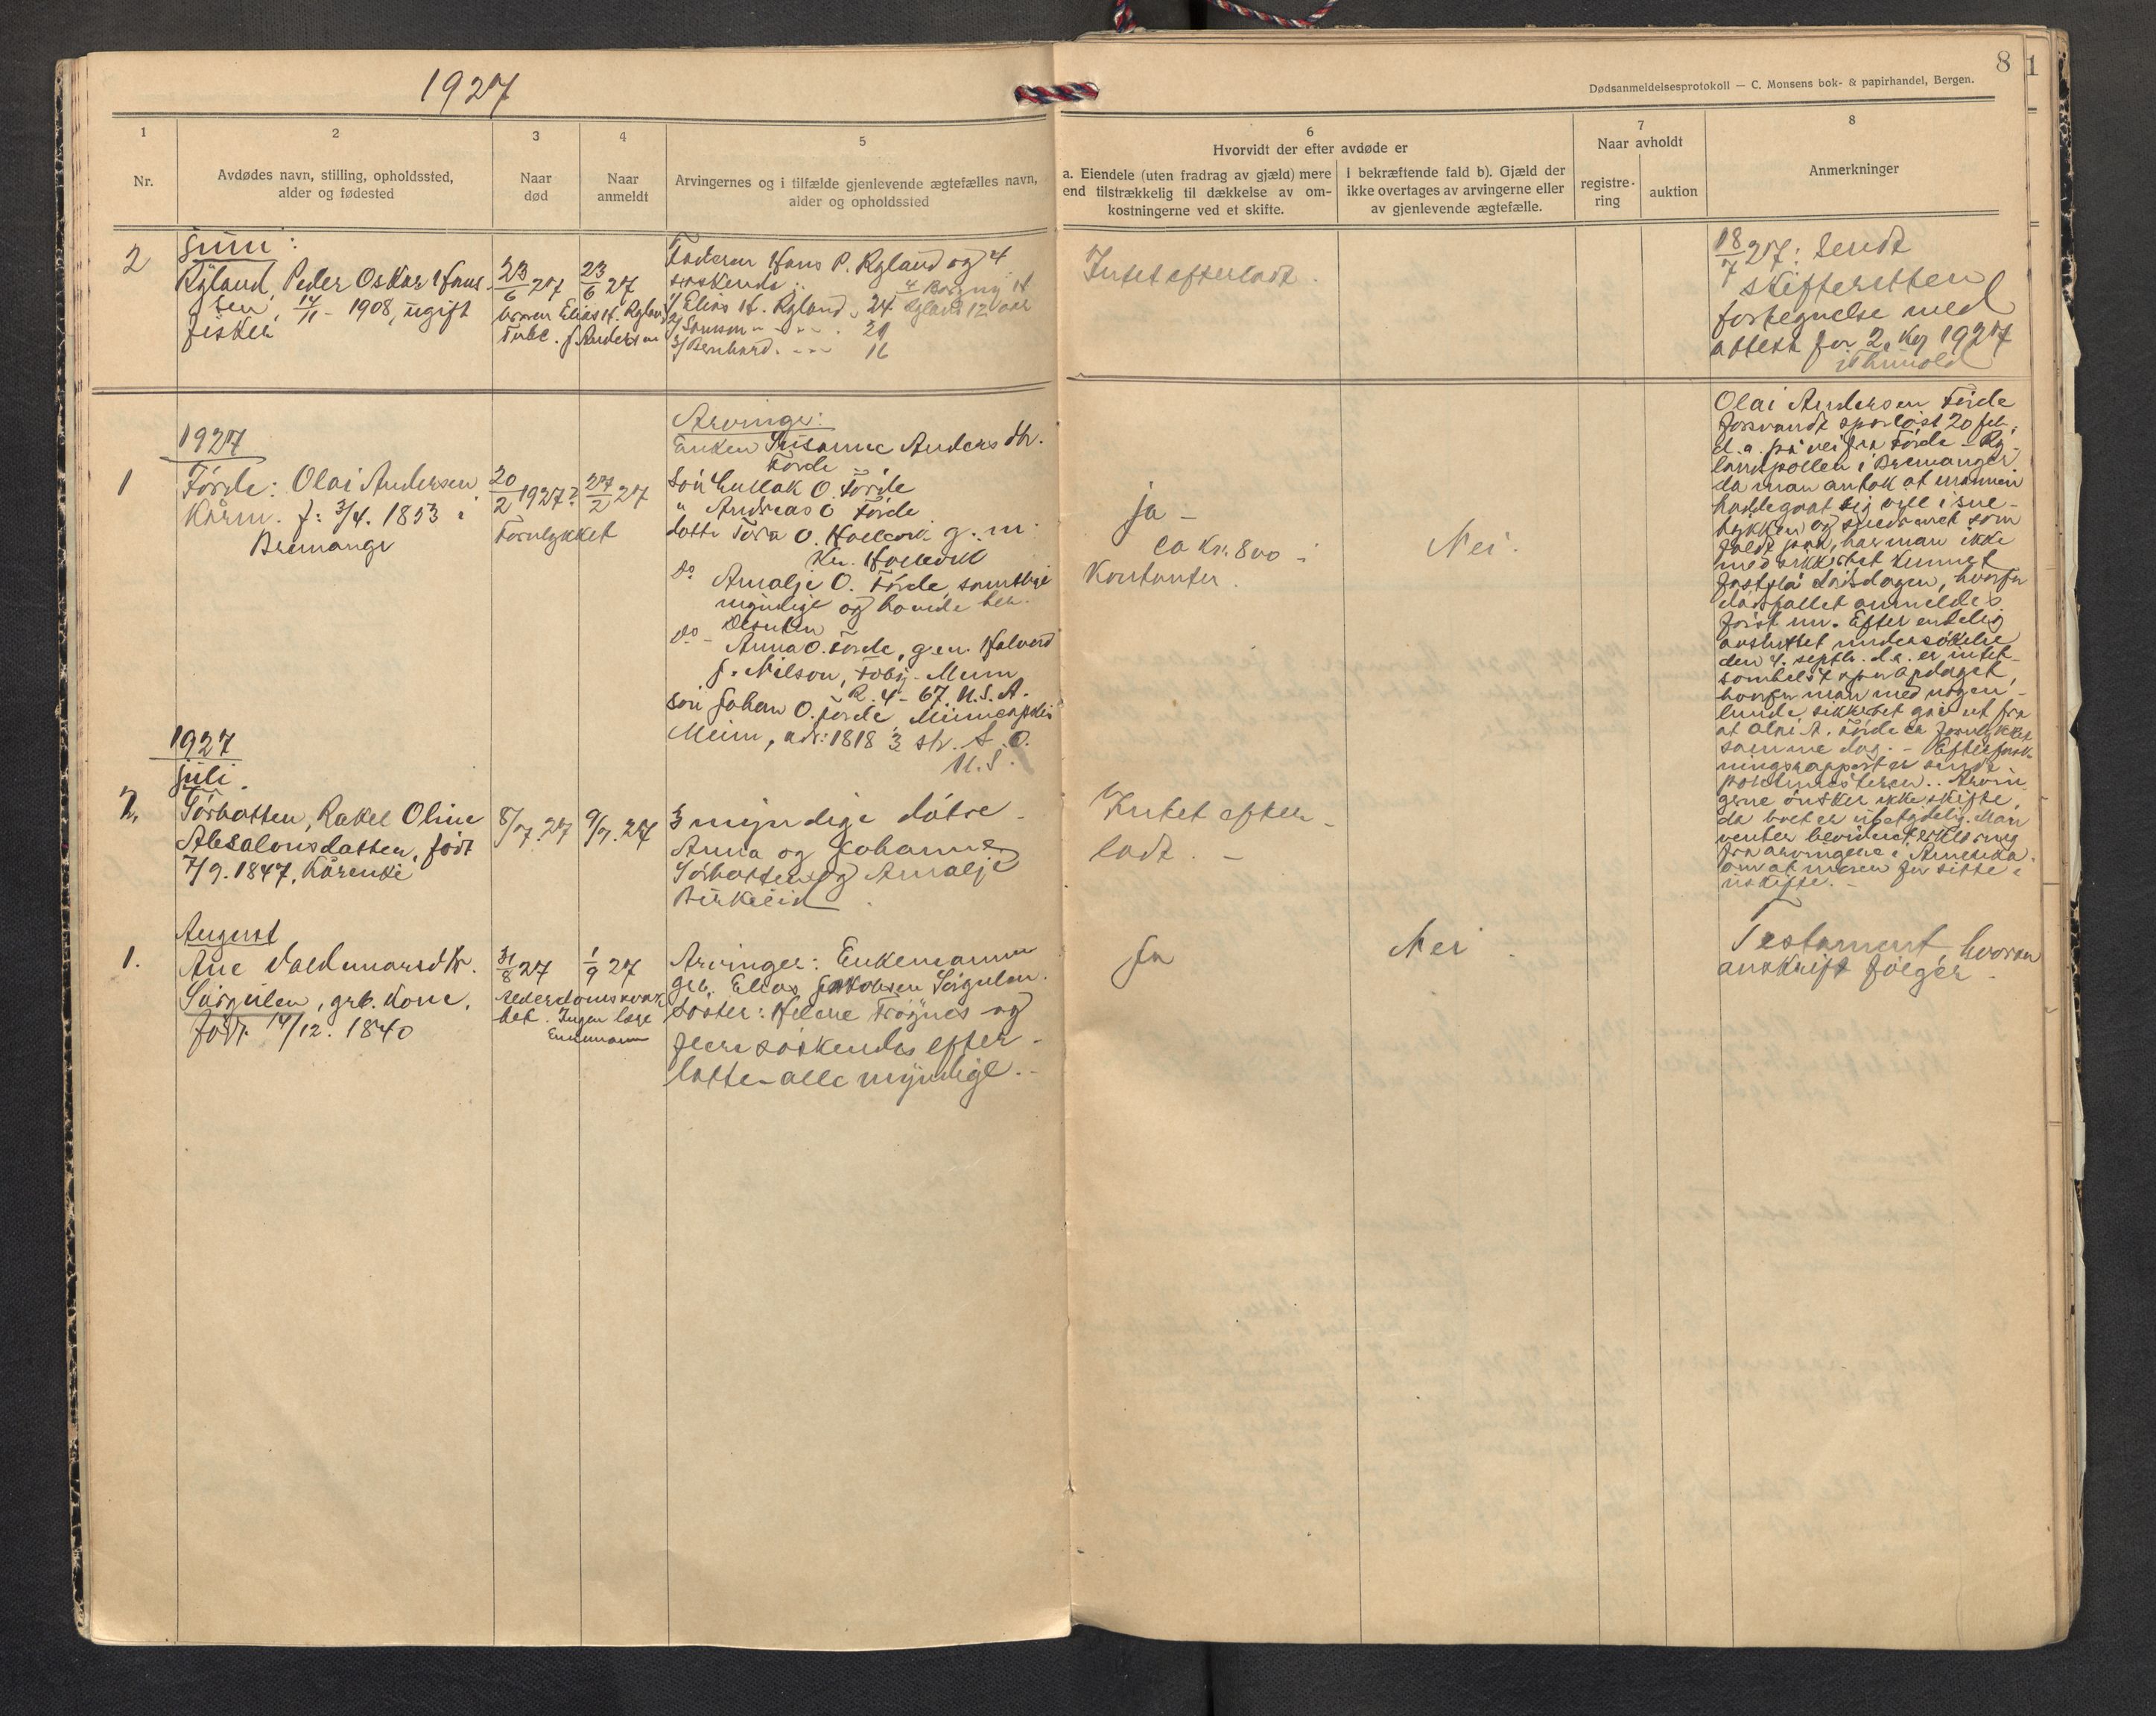 1927
8
1
Dødsanmeldelsesprotokoll — C. Monsens bok- & papirhandel, Bergen.
1
Nr.
2
Avdødes navn, stilling, opholdssted,
alder og fødested
3
Naar
død
4
Naar
anmeldt
5
Arvingernes og i tilfælde gjenlevende ægtefælles navn,
alder og opholdssted
6
Hvorvidt der efter avdøde er
a. Eiendele (uten fradrag av gjæld) mere
end tilstrækkelig til dækkelse av om-
kostningerne ved et skifte.
I bekræftende fald b). Gjæld der
ikke overtages av arvingerne eller
av gjenlevende ægtefælle.
7
Naar avholdt
registre-
ring
auktion
8
Anmerkninger
Juni:
2
Rÿland, Peder Oskar Hans-
sen, 14/11 - 1908, ugift
fisker
23/6 27
23/6 27
broren Elias H. Rÿland
Tube. J. Andersen
Faderen Hans P. Rÿland og 4
søskende:
1/ Elias H. Rÿland. 24
2/ Samson - - - 21
3/ Bernhard. - - - 16
4 Borgny H
Rÿland 12 aar
Intet efterladt.
18/7 27: Sendt
skifteretten
fortegnelse med
attest for 2. kv 1927
1927
1
Förde: Olai Andersen
Kårm. f: 3/4. 1853 i
Bremanger
20/2 1927?
27/2 27
Forulykket
Arvinger:
Enken Susanne Anders dtr.
Förde
Sön Enllak O. Förde
" Andreas O Förde
datter Tora O. g. m.
Kr.
Do Amalje O. Förde, samtlige
myndige og boende her.
Do - Desuten
Anna O. Förde, gen. Halvord
J. Nilson, Minn
R. 4 - 67. U.S.A.
sön Johan O. Förde, Minneapolis
Minn, adr: 1818 3 str. S. O.
U.S.
ja -
ca kr. 800 i
Kontanter.
Nei.
Olai Andersen Förde
forsvandt sporlöst 20 feb.
d.a. på vei fra Förde - Ry-
landspollen i Bremanger
da man antok at mannen
hadde gaat sig vill i sne-
tykken og snedrevet som
faldt paa, har man ikke
med sikkerhet kunnet
fastslå dödsdagen, hvorfor
dödsfallet anmeldes
först nu. Efter endelig
avsluttet undersökelse
den 4. septbr. d.a. er intet-
somhelst spor opdaget,
hvorfor man med nogen-
lunde sikkerhet går ut fra
at Olai A. Förde er forulykket
samme dag. - Efterforsk-
ningsrapport er sendt
politimesteren. Arvin-
gerne önsker ikke skifte,
da boet er ubetydelig. Man
venter bevidnet erklæring
fra arvingene i Amerika.
om at moren får sitte i
uskifte. -
1927
Juli.
2.
Sörbotten, Rakel Oline
Absalonsdatter, född
7/9. 1847. Kårenke
8/7. 27
9/7. 27
3 myndige døtre -
Anna og Johanne
Sörbotten og Amalje
Birkeid.
Intet efter-
ladt. -
August
1.
Ane Valdemarsdtr.
Sörgulen, grb. kone.
född. 14/12. 1840
31/8 27
1/9 27
Alderdomssvak-
het. Ingen læge
Enkemann
Arvinger: Enkemannen
grb. Elias Jakobsen Sörgulen.
Söster: Helene Fröÿnes og
flere söskendes efter-
latte - alle myndige. -
Ja
Nei.
Testament, hvorav
avskrift fölger.